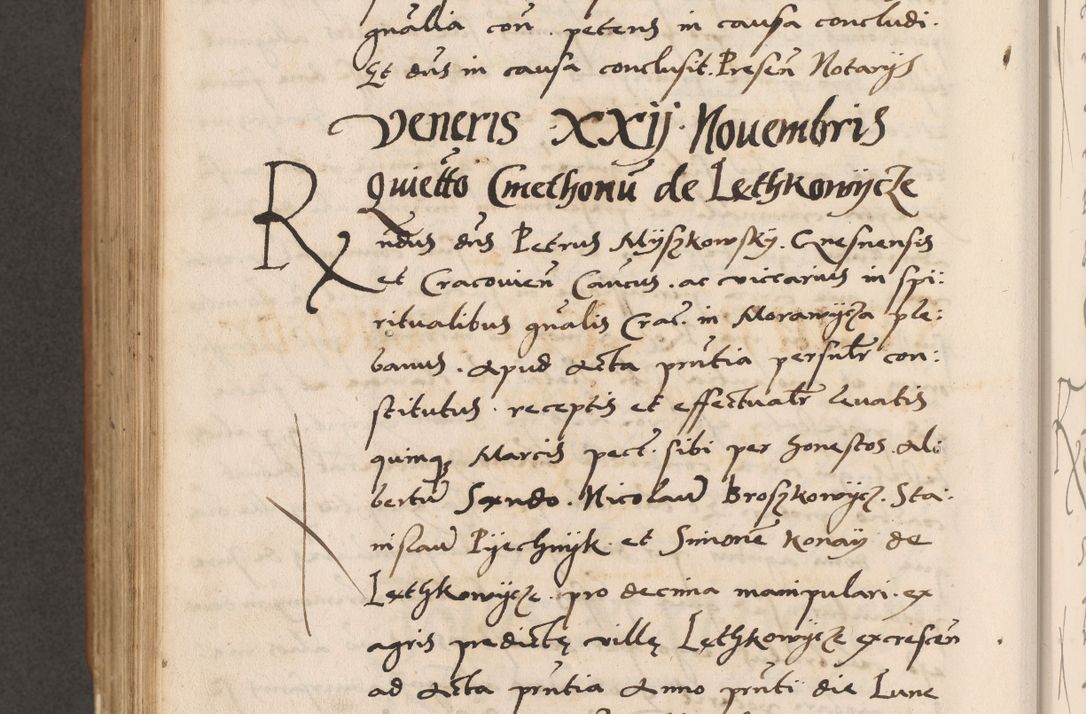 gnãlia con̄. petens in causa concludi.
Et dñs in causa conclusit. Presen̄ Notarijs
Veneris XXIJ. Nouembris
Quiettõ Cmethonũ de Lethkowÿcze
Rñdus dñs Petrus Mÿszkowskÿ. Gnesnensis
et Cracouien̄ Cañcus. ac viccarius in spi:
ritualibus gñalis Crac̄. in Morawÿcza ple:
banus. Apud Acta pñtia persñlr̄ con:
stitutus. receptis et effectualr̄ leuatis
quinqʒ Marcis pect̄. sibi per honestos Al:
bertũ Sendo. Nicolaũ Broszkowÿcz. Sta:
nislaũ Pÿechnÿk et Simonẽ Konaÿ de
Lethkowÿcze. pro decima manipulari. ex
agris predictę villę Lethkowÿcze excrescen̄
ad Acta pñtia Anno pñti die Lune